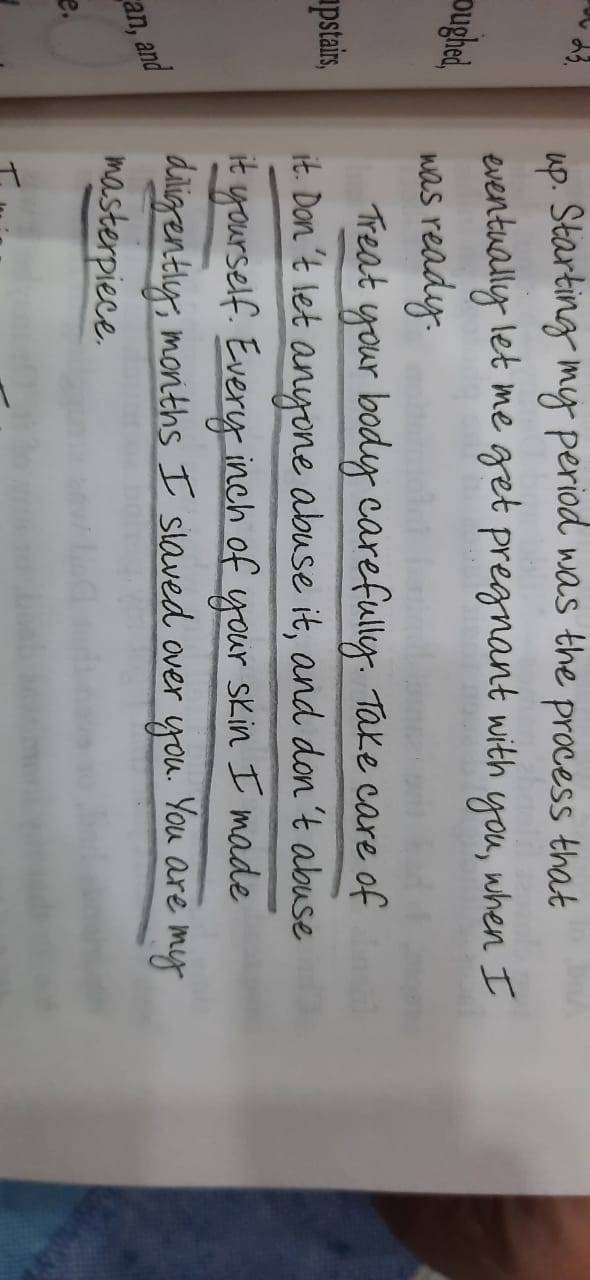 up. Starting my period was the process that
eventually let me get pregnant with you, when I
was ready.
Treat your body carefully. Take care of
it. Don't let anyone abuse it, and don't abuse
it yourself. Every inch of your skin I made
diligently, months I slaved over you. You are my
masterpiece.
23.
oughed,
upstairs,
an, and
e.